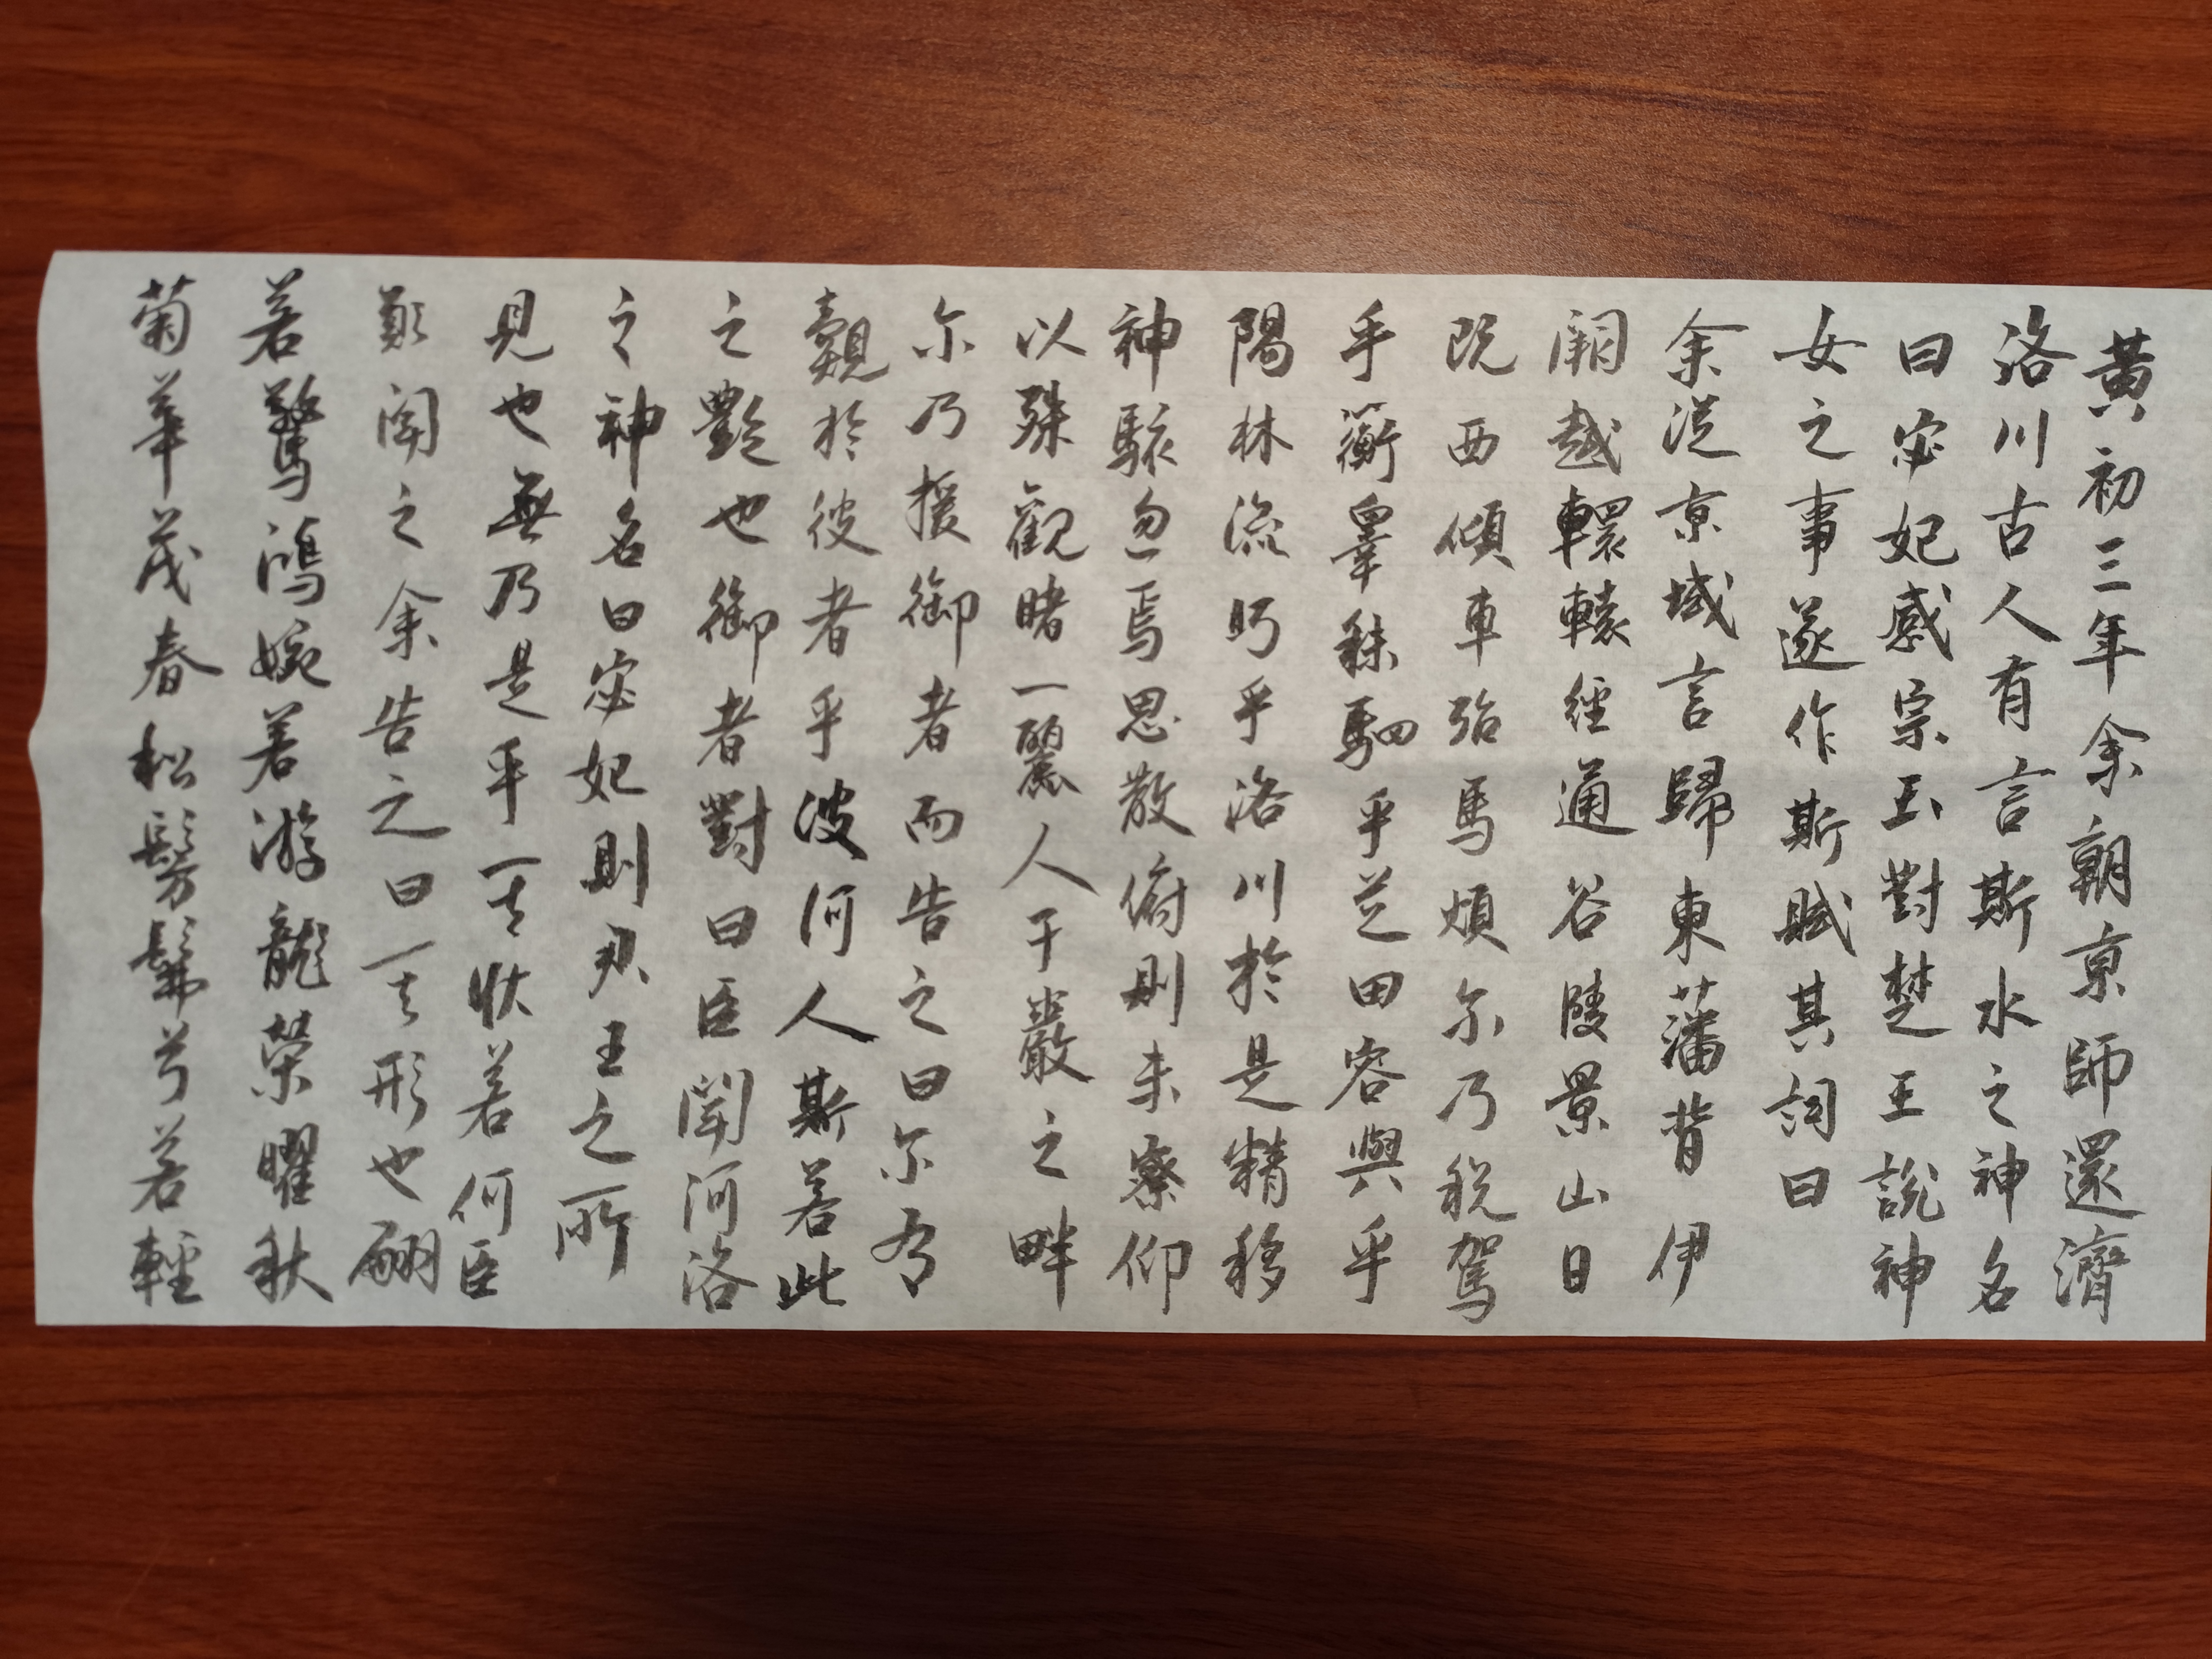 黃初三年余朝京師還濟
洛川古人有言斯水之神名
曰宓妃感宗玉對楚王說神
女之事遂作斯賦其詞曰
余従京域言歸東藩背伊
闕越轘轅經通谷陵景山日
既西傾車殆馬煩尓乃税駕
乎蘅皋秣駟乎芝田容與乎
陽林流眄乎洛川於是精移
神駭忽焉思散俯則未察仰
以殊觀睹一麗人于巖之畔
尓乃援御者而告之曰尓有
覿於彼者乎彼何人斯若此
之艷也御者對曰臣聞河洛
之神名曰宓妃則君王之所
見也無乃是乎其狀若何臣
願聞之余告之曰其形也翩
若驚鴻婉若游龍榮曜秋
菊華茂春松髣髴兮若輕